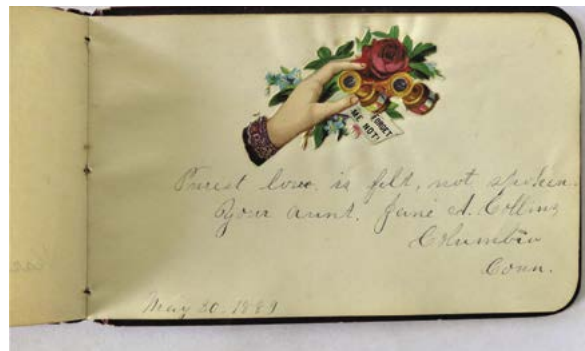 FORGET
ME NOT!
Purest love is felt, not spoken.
Your aunt. Jane A. Collins
Columbia
Conn.
May 20. 1889